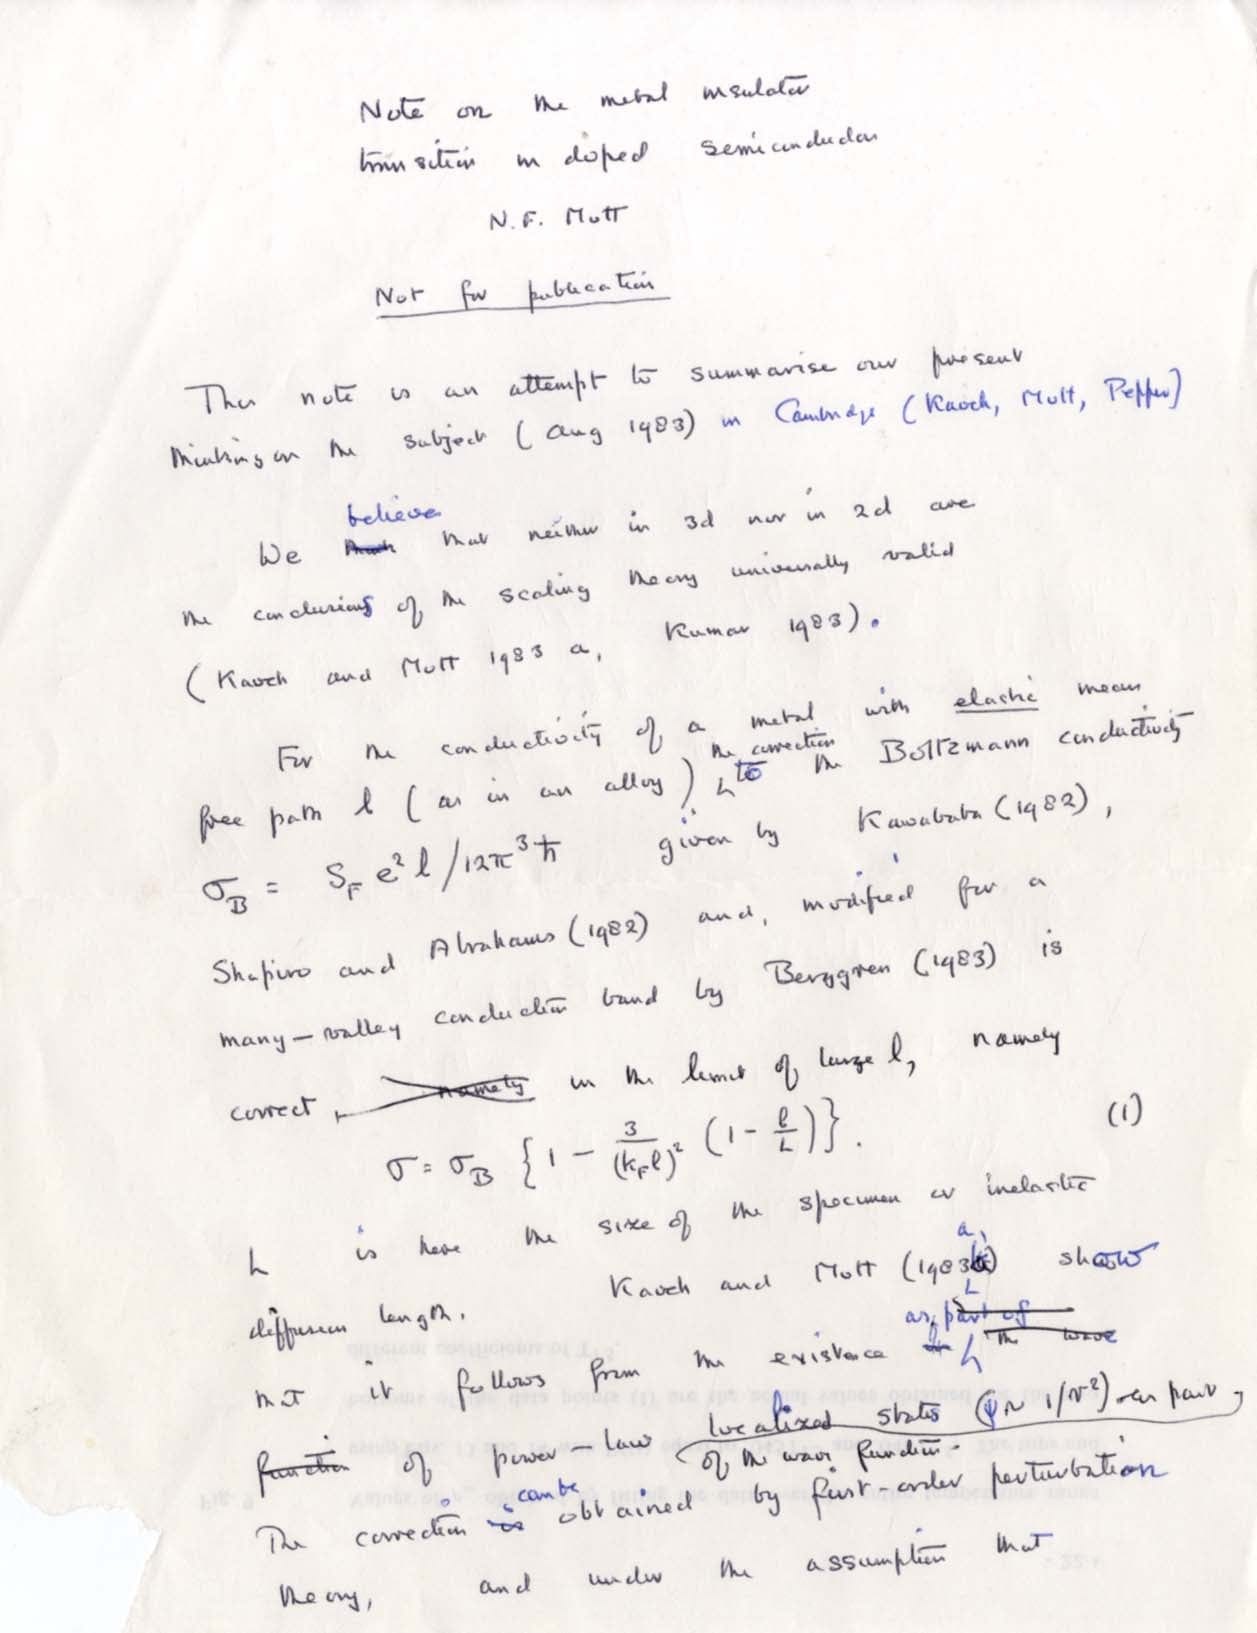 Note on the metal insulator
transition in doped semiconductors
N.F. Mott
Not for publication
This note is an attempt to summarise our present
thinking on the subject (Aug 1983) in Cambridge (Kaveh, Mott, Pepper)
believe
We that neither in 3d nor in 2d are
the conclusions of the scaling theory universally valid
(Kaveh and Mott 1983 a, Kumar 1983).
For the conductivity of a metal with elastic mean
the correction
free path l (as in an alloy) to the Boltzmann conductivity
σ_B = S_F e² l / 12π³ħ given by Kawabata (1982),
Shapiro and Abrahams (1982) and, modified for a
many-valley conduction band by Berggren (1983) is
correct, namely in the limit of large l, namely
σ = σ_B { 1 - 3/(k_F l)² (1 - l/L) }. (1)
L is here the size of the specimen or inelastic
diffusion length. Kaveh and Mott (1983a) show
as part of
that it follows from the existence the wave
function of power-law localized states (ψ ~ 1/r²) as part
of the wave function.
can be
The correction is obtained by first-order perturbation
theory, and under the assumption that